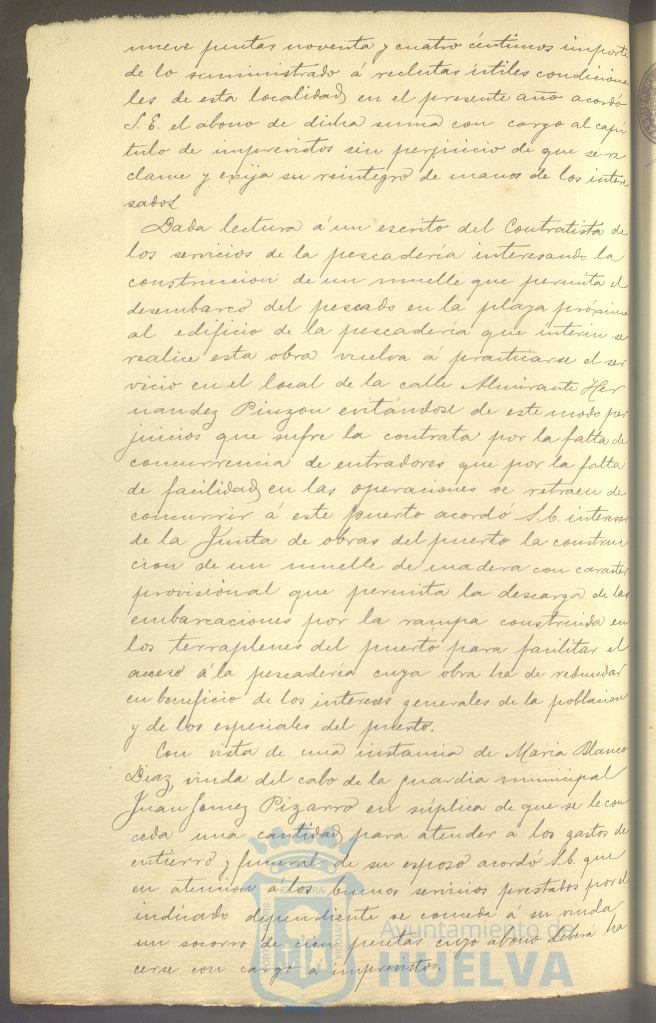 nueve pesetas noventa y cuatro céntimos importe
de lo suministrado á reclutas útiles condiciona
les de esta localidad en el presente año acordó
S. E. el abono de dicha suma con cargo al capi
tulo de imprevistos sin perjuicio de que se re
clame y exija su reintegro de manos de los intere
sados
Dada lectura á un escrito del Contratista de
los servicios de la pescadería interesando la
construccion de un muelle que permita el
desembarco del pescado en la playa próxima
al edificio de la pescadería que interin se
realice esta obra vuelva á practicarse el ser
vicio en el local de la calle Almirante Her
nandez Pinzon evitándose de este modo per
juicios que sufre la contrata por la falta de
concurrencia de entradores que por la falta
de facilidad en las operaciones se retraen de
concurrir á este puerto acordó S. E. interesar
de la Junta de obras del puerto la construc
cion de un muelle de madera con caracter
provisional que permita la descarga de las
embarcaciones por la rampa construida en
los terraplenes del puerto para facilitar el
acceso á la pescadería cuya obra ha de redundar
en beneficio de los intereses generales de la poblacion
y de los especiales del puerto.
Con vista de una instancia de Maria Blanco
Diaz, viuda del cabo de la guardia municipal
Juan Gomez Pizarro en súplica de que se le con
ceda una cantidad para atender á los gastos de
entierro y funeral de su esposo acordó S. E. que
en atencion á los buenos servicios prestados por el
indicado dependiente se conceda á su viuda
un socorro de cien pesetas cuyo abono deberá ha
cerse con cargo a imprevistos.
Ayuntamiento de
HUELVA